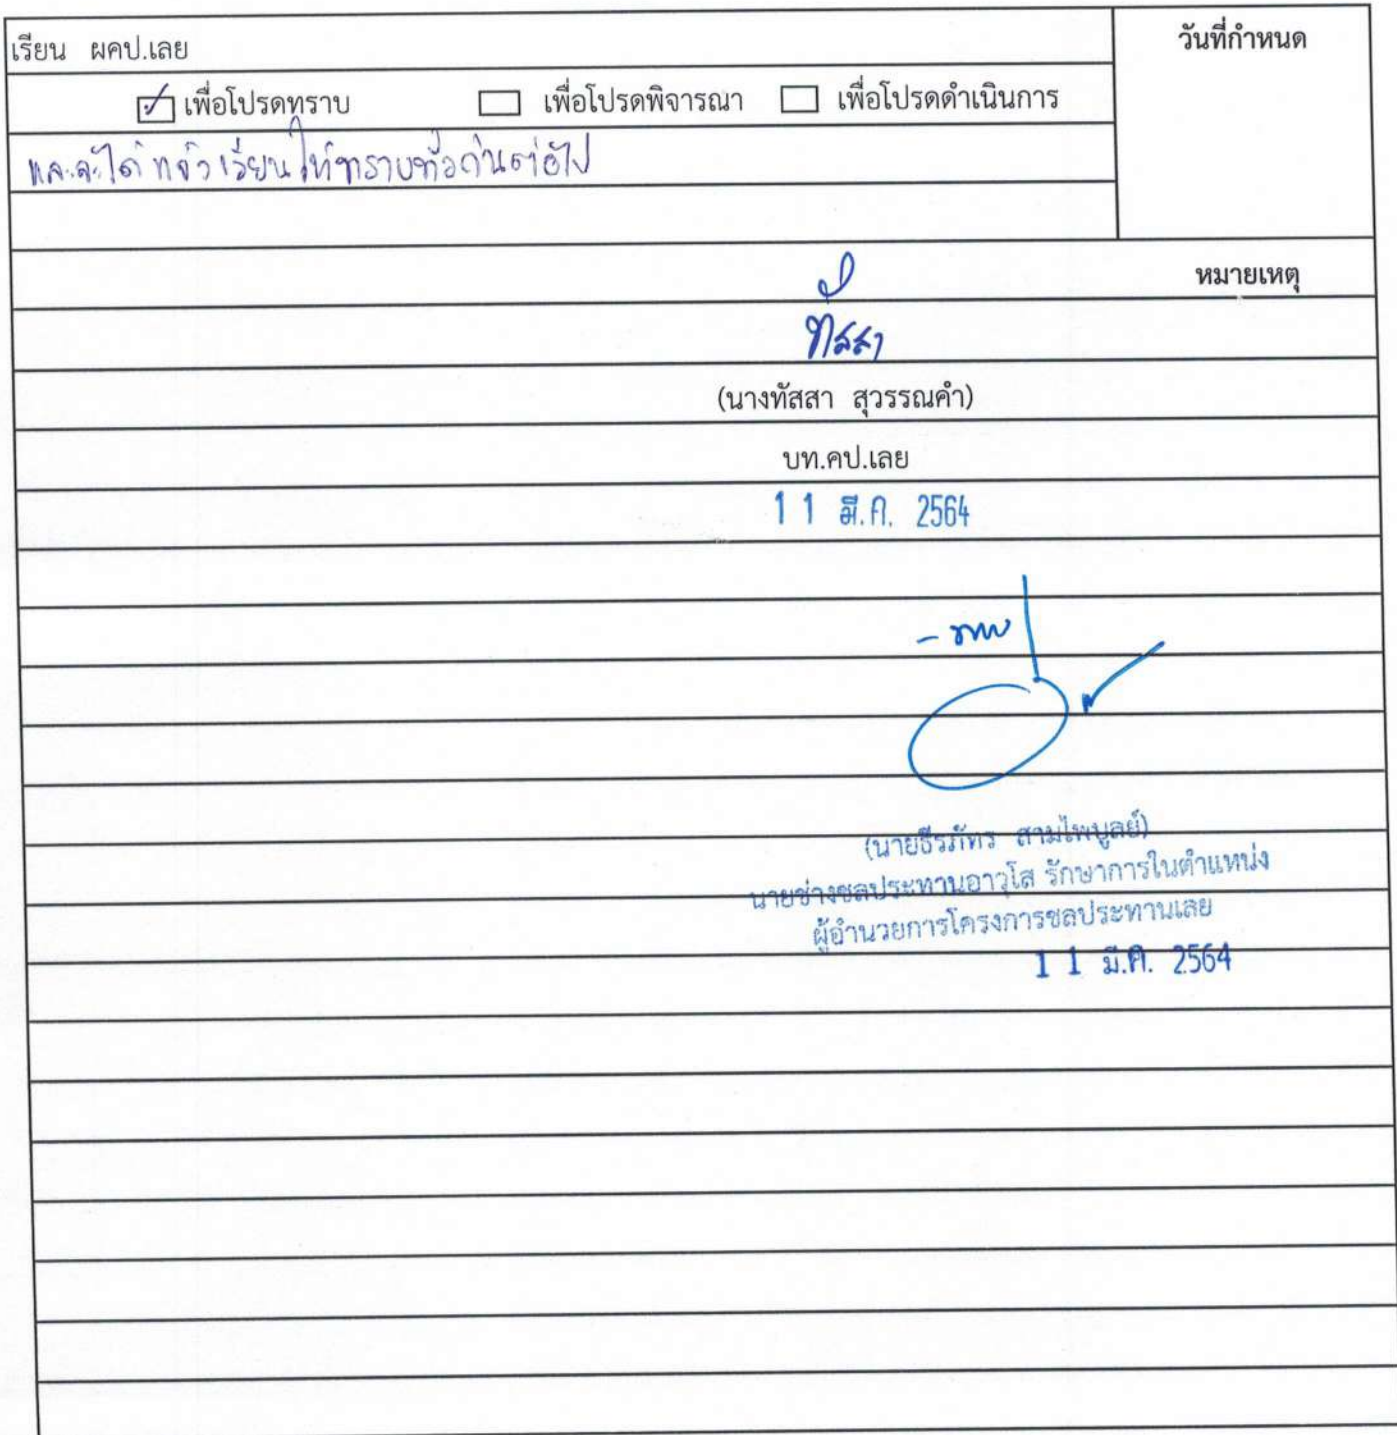 เรียน ผคป.เลย
วันที่กำหนด
เพื่อโปรดทราบ เพื่อโปรดพิจารณา เพื่อโปรดดำเนินการ
และจะได้แจ้งเวียนให้ทราบทั่วกันต่อไป
หมายเหตุ
ทัสสา
(นางทัสสา สุวรรณคำ)
บท.คป.เลย
11 มี.ค. 2564
- ทราบ
(นายธีรภัทร สามไพบูลย์)
นายช่างชลประทานอาวุโส รักษาการในตำแหน่ง
ผู้อำนวยการโครงการชลประทานเลย
11 มี.ค. 2564